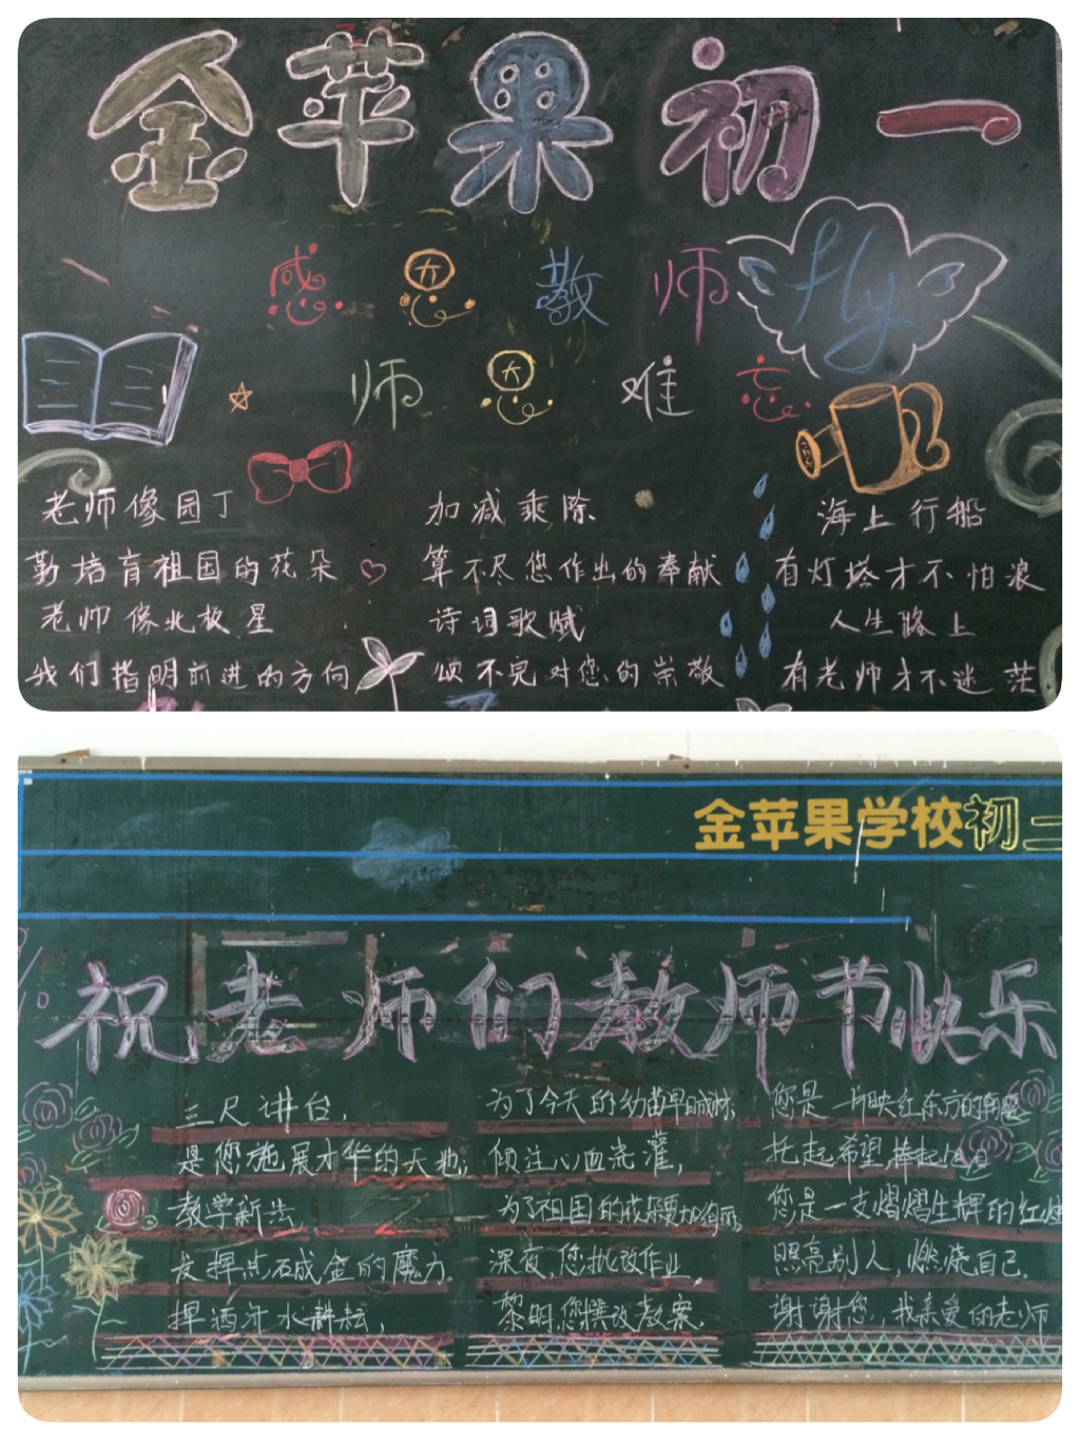 金苹果初一
感恩教师
fly
师恩难忘
老师像园丁
勤培育祖国的花朵
老师像北极星
我们指明前进的方向
加减乘除
算不尽您作出的奉献
诗词歌赋
颂不完对您的崇敬
海上行船
有灯塔才不怕浪
人生路上
有老师才不迷茫
金苹果学校初二
祝老师们教师节快乐
三尺讲台,
是您施展才华的天地;
教学新法
发挥点石成金的魔力。
挥洒汗水耕耘,
为了今天的幼苗早成林
倾注心血浇灌,
为了祖国的花朵更加绚丽。
深夜,您批改作业
黎明,您撰改教案。
您是一片映红东方的朝霞
托起希望,捧起
您是一支熠熠生辉的红烛
照亮别人,燃烧自己。
谢谢您,我亲爱的老师